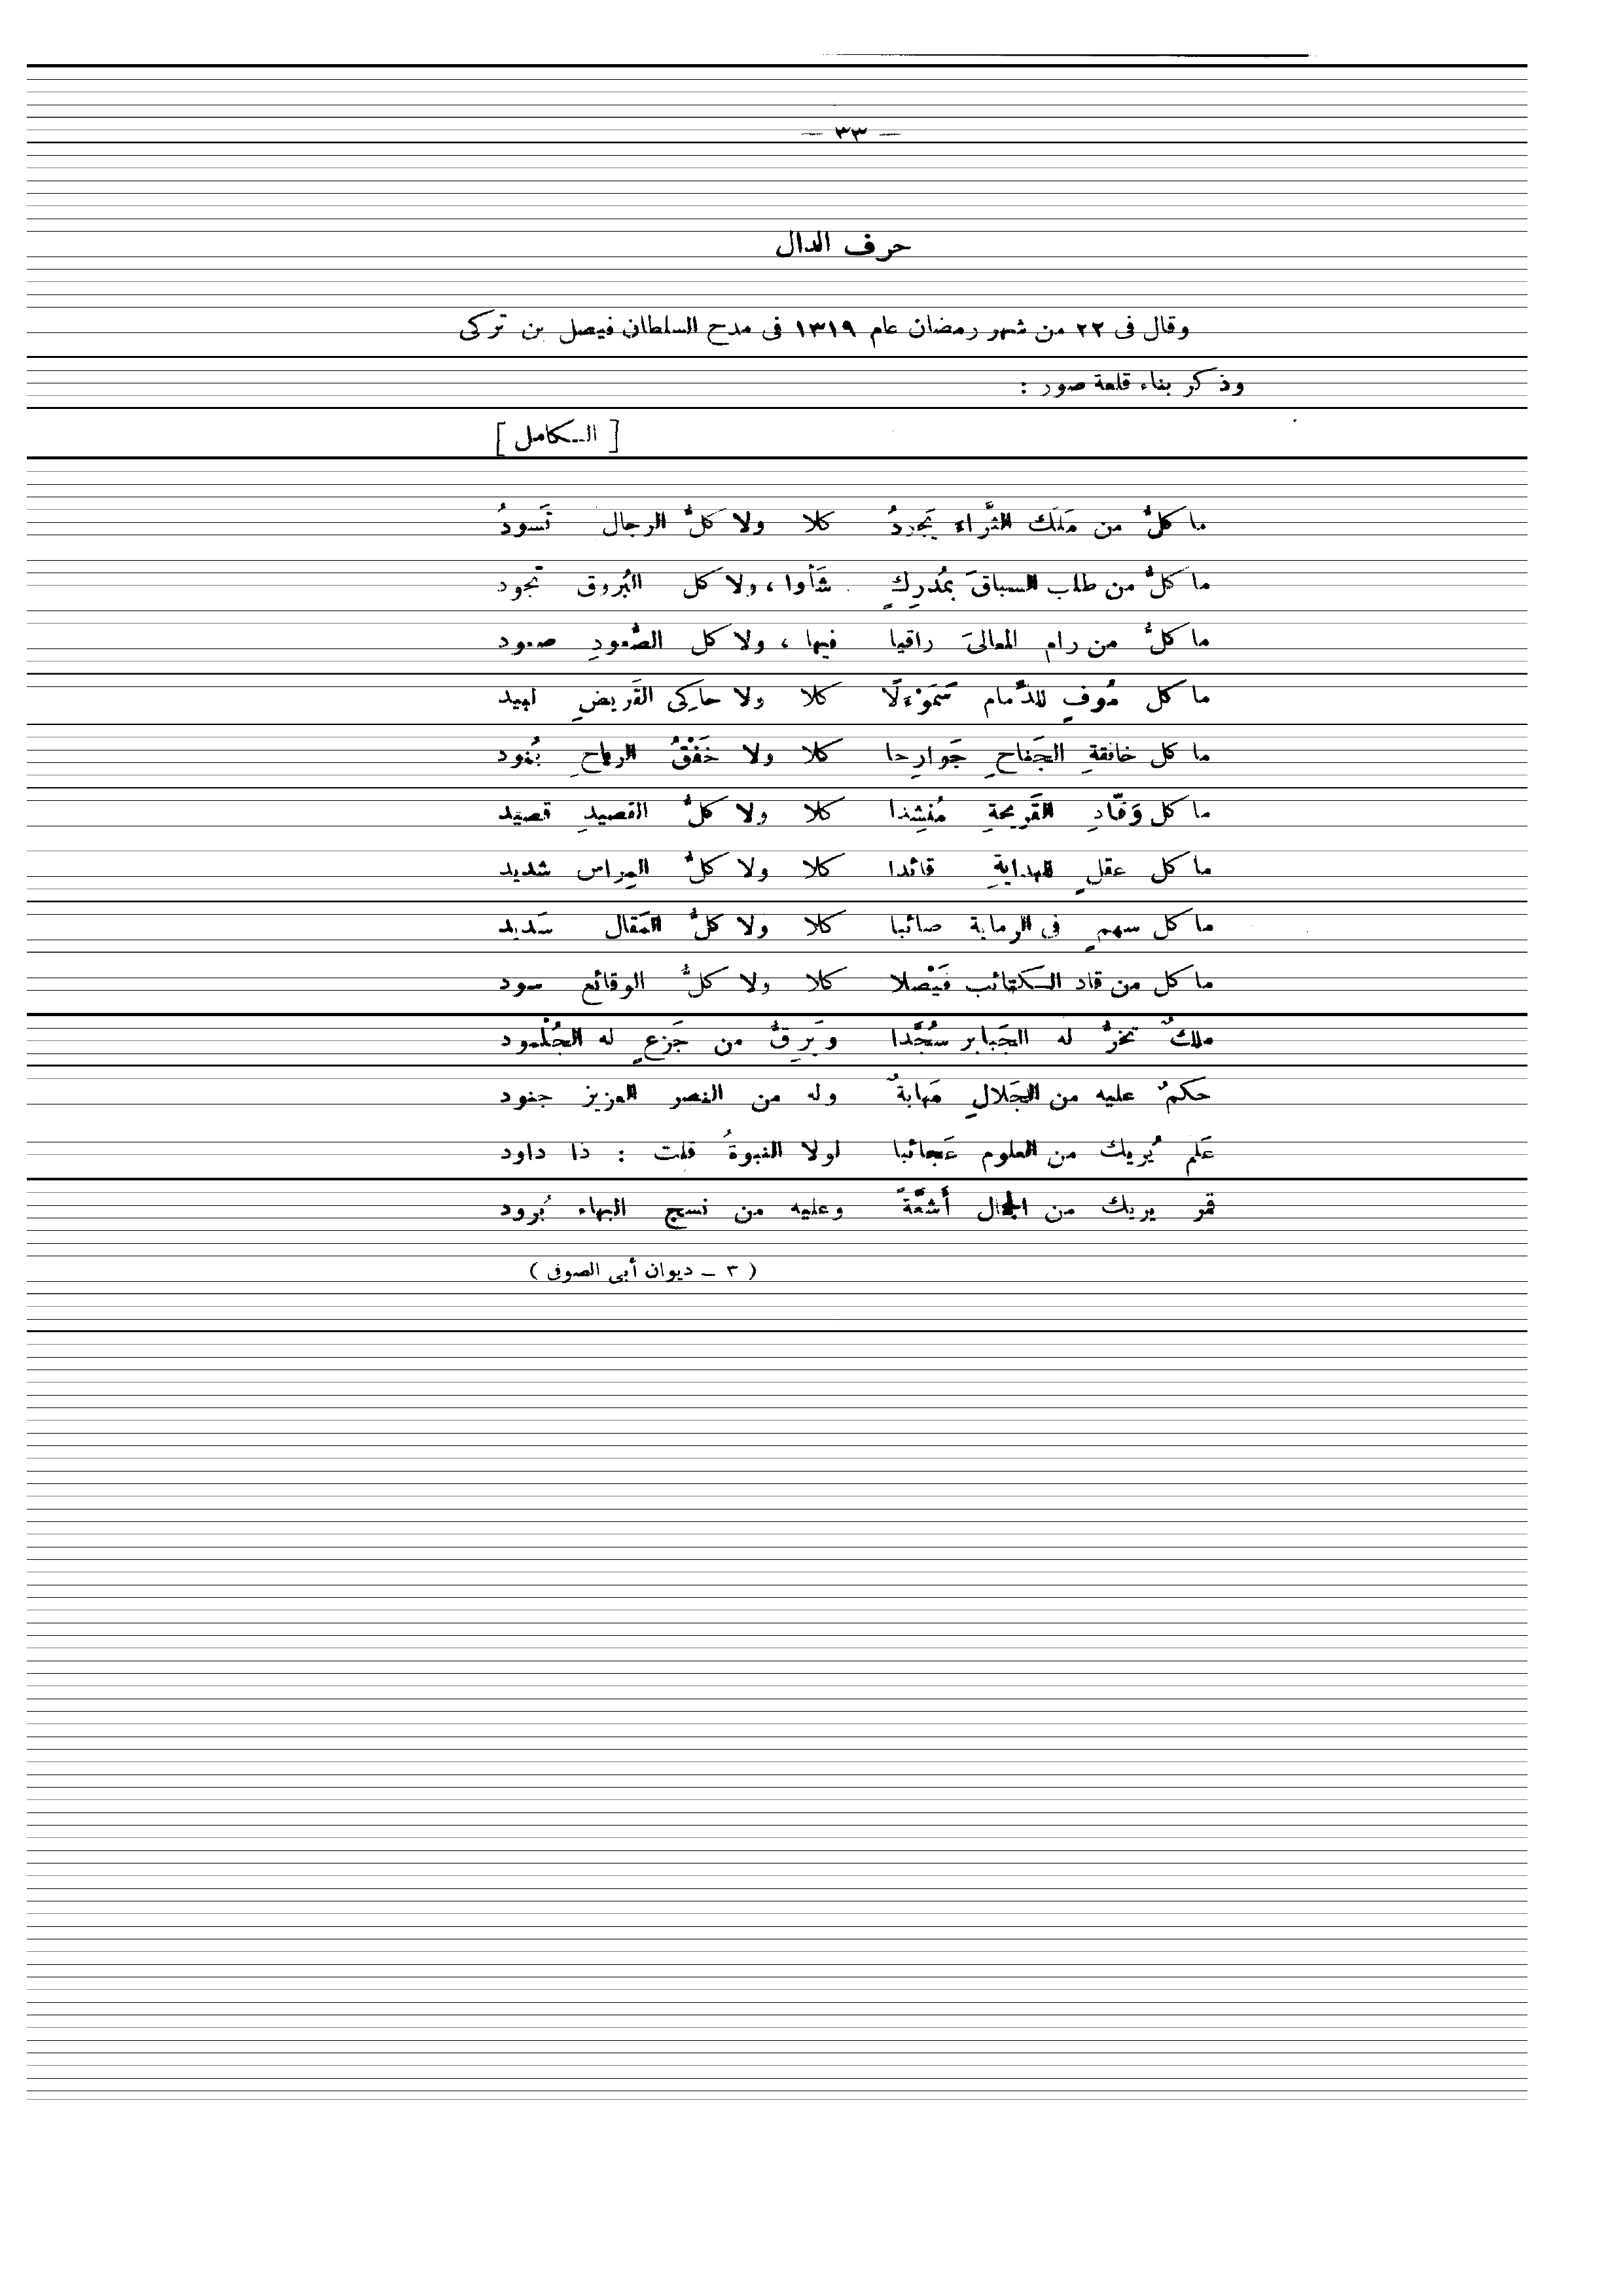 — ٣٣ —
حرف الدال
وقال فى ٢٢ من شهر رمضان عام ١٣١٩ فى مدح السلطان فيصل بن تركى
وذكر بناء قلعة صور :
[ الكامل ]
ما كلُّ من مَلَك الثَّراء يَجودُ كلا ولا كلُّ الرجال تَسودُ
ما كلُّ من طلب السباقَ بمُدرِكٍ شَأوا ، ولا كل البُروق تجود
ما كلُّ من رام المعالىَ راقيا فيها ، ولا كل الصُّعودِ صعود
ما كل مُوفٍ للذِّمام سَمَوْءلًا كلا ولا حاكِى القَريضِ لبيد
ما كل خافقةِ الجَناحِ جَوارِحا كلا ولا خَفْقُ الرماحِ بُنود
ما كل وَقّادِ القَريحةِ مُنشِدا كلا ولا كلُّ القصيدِ قصيد
ما كل عقلٍ للهدايةِ قائدا كلا ولا كلُّ المِراس شديد
ما كل سهمٍ فى الرماية صائبا كلا ولا كلُّ المَقال سَديد
ما كل من قاد الكتائب فَيْصلا كلا ولا كلُّ الوقائع سود
ملكٌ تخرُّ له الجَبابر سُجَّدا ويَرِقُّ من جَزعٍ له الجُلْمود
حكمٌ عليه من الجَلالِ مَهابةٌ وله من النصر العزيز جنود
عَلم يُريك من العلوم عَجائبا لولا النبوةُ قلت : ذا داود
قمر يريك من الجمال أَشعَّةً وعليه من نسج البهاء بُرود
( ٣ – ديوان أبى الصوفى )